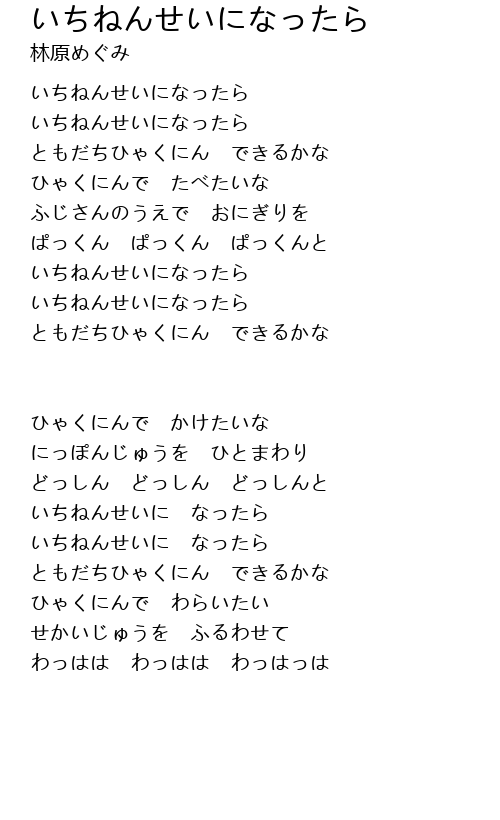 いちねんせいになったら
林原めぐみ
いちねんせいになったら
いちねんせいになったら
ともだちひゃくにん　できるかな
ひゃくにんで　たべたいな
ふじさんのうえで　おにぎりを
ぱっくん　ぱっくん　ぱっくんと
いちねんせいになったら
いちねんせいになったら
ともだちひゃくにん　できるかな
ひゃくにんで　かけたいな
にっぽんじゅうを　ひとまわり
どっしん　どっしん　どっしんと
いちねんせいに　なったら
いちねんせいに　なったら
ともだちひゃくにん　できるかな
ひゃくにんで　わらいたい
せかいじゅうを　ふるわせて
わっはは　わっはは　わっはっは